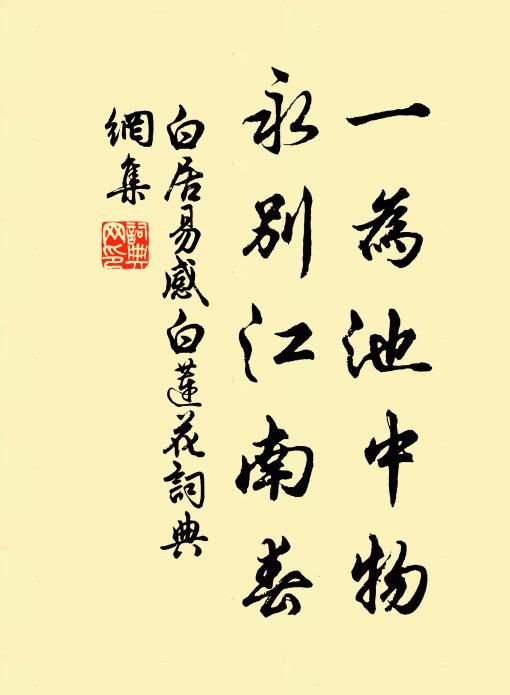 一為池中物
永別江南春
白居易感白蓮花詞典
網集
詞典網印